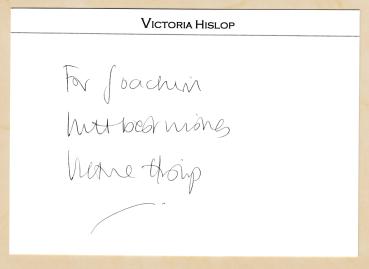 VICTORIA HISLOP
For Joachim
With best wishes
Victoria Hislop